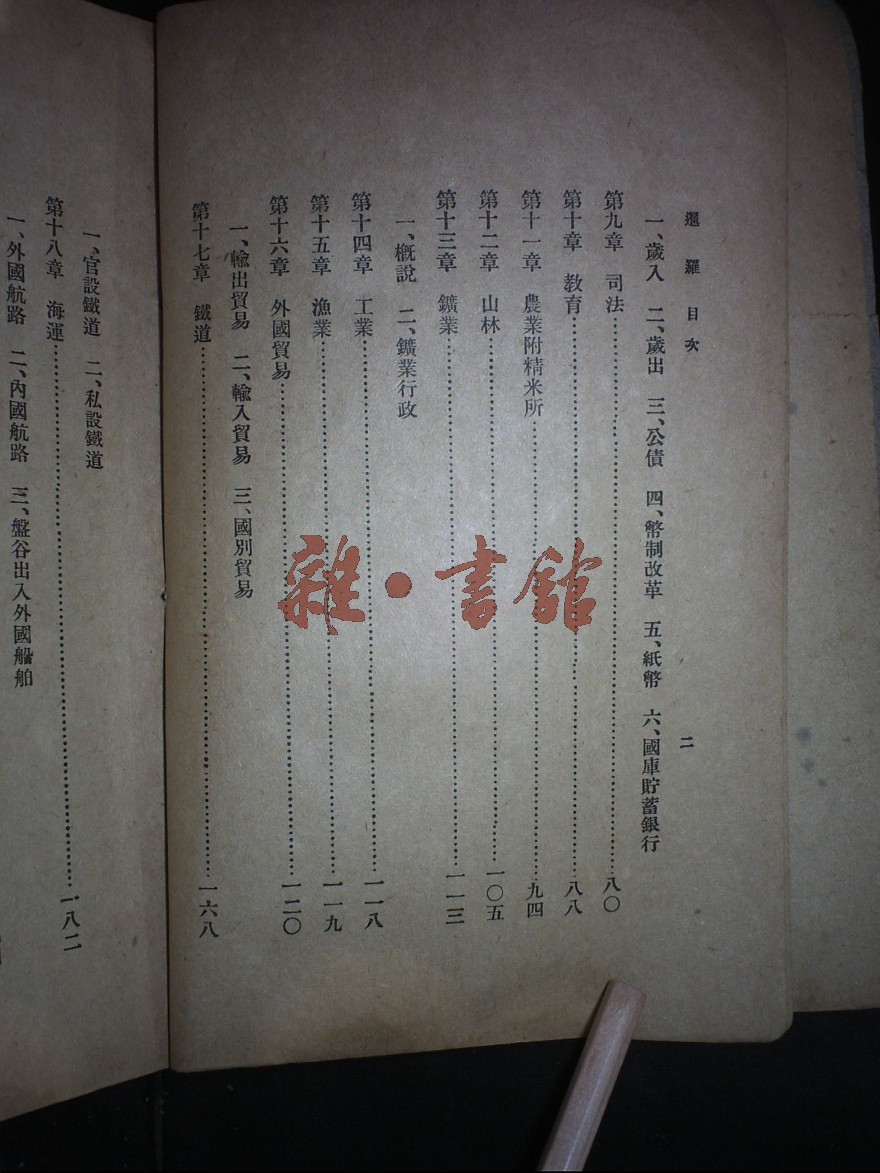 暹羅目次 二
一、歲入 二、歲出 三、公債 四、幣制改革 五、紙幣 六、國庫貯蓄銀行
第九章 司法……八〇
第十章 教育……八八
第十一章 農業附精米所……九四
第十二章 山林……一〇五
第十三章 鑛業……一一三
一、槪說 二、鑛業行政
第十四章 工業……一一八
第十五章 漁業……一一九
第十六章 外國貿易……一二〇
一、輸出貿易 二、輸入貿易 三、國別貿易
第十七章 鐵道……一六八
一、官設鐵道 二、私設鐵道
第十八章 海運……一八二
一、外國航路 二、內國航路 三、盤谷出入外國船舶
雜·書館